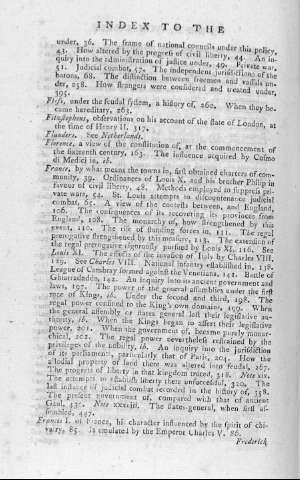 INDEX TO THE
under, 36. The frame of national councils under this policy,
43. How altered by the progress of civil liberty, 44. An in-
quiry into the administration of justice under, 49. Private war,
51. Judicial combat, 57. The independent jurisdictions of the
barons, 68. The distinction between freemen and vassals un-
der, 258. How strangers were considered and treated under,
395.
Fiefs, under the feudal system, a history of, 260. When they be-
came hereditary, 263.
Fitzstephens, observations on his account of the state of London, at
the time of Henry II. 317.
Flanders. See Netherlands.
Florence, a view of the constitution of, at the commencement of
the fifteenth century, 163. The influence acquired by Cosmo
di Medici in, ib.
France, by what means the towns in, first obtained charters of com-
munity, 39. Ordinances of Louis X. and his brother Philip in
favour of civil liberty, 48. Methods employed to suppress pri-
vate wars, 54. St. Louis attempts to discountenance judicial
combat, 62. A view of the contests between, and England,
106. The consequences of its recovering its provinces from
England, 108. The monarchy of, how strengthened by this
event, 110. The rise of standing forces in, 111. The regal
prerogative strengthened by this measure, 113. The extension of
the regal prerogative vigorously pursued by Louis XI. 116. See
Louis XI. The effects of the invasion of Italy by Charles VIII.
129. See Charles VIII. National infantry established in, 138.
League of Cambray formed against the Venetians, 141. Battle of
Ghiarradadda, 142. An inquiry into its ancient government and
laws, 197. The power of the general assemblies under the first
race of Kings, ib. Under the second and third, 198. The
regal power confined to the King's own domains, 199. When
the general assembly or states general lost their legislative au-
thority, ib. When the Kings began to assert their legislative
power, 201. When the government of, became purely monar-
chical, 202. The regal power nevertheless restrained by the
privileges of the nobility, ib. An inquiry into the jurisdiction
of its parliaments, particularly that of Paris, 205. How the
allodial property of land there was altered into feudal, 267.
The progress of liberty in that kingdom traced, 318. Note xix.
The attempts to establish liberty there unsuccessful, 320. The
last instance of judicial combat recorded in the history of, 358.
The present government of, compared with that of ancient
Gaul, 435. Note xxxviii. The states-general, when first as-
sembled, 437.
Francis I. of France, his character influenced by the spirit of chi-
valry, 85. Is emulated by the Emperor Charles V. 86.
Frederick